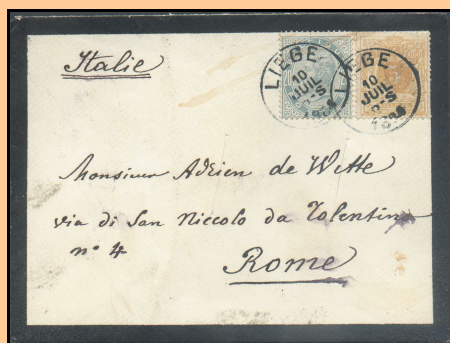 Italie
LIEGE
10
JUIL
LIEGE
10
JUIL
Monsieur Adrien de Witte
via di San Niccolo da Tolentino
n° 4
Rome